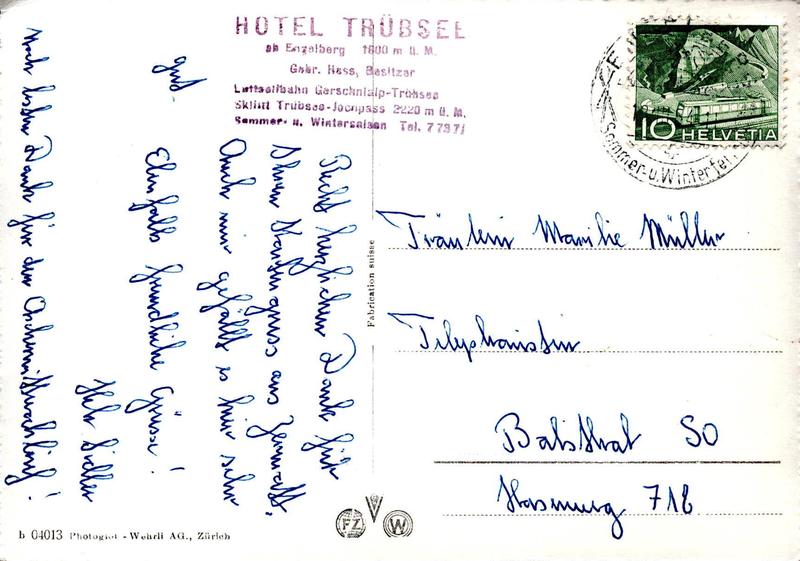 HOTEL TRÜBSEE
ob Engelberg 1800 m ü. M.
Gebr. Hess, Besitzer
Luftseilbahn Gerschnialp-Trübsee
Skilift Trübsee-Jochpass 2220 m ü. M.
Sommer- u. Wintersaison Tel. 77371
10 HELVETIA
Sommer- u. Winter
Recht herzlichen Dank für
Ihren Kartengruss aus Zermatt.
Auch mir gefällt es hier sehr
gut.
Ebenfalls freundliche Grüsse!
Noch lieben Dank für den
Fräulein Marilie Müller
Telephonistin
Balsthal SO
718
Fabrication suisse
FZ W
b 04013 Photoglob-Wehrli AG., Zürich